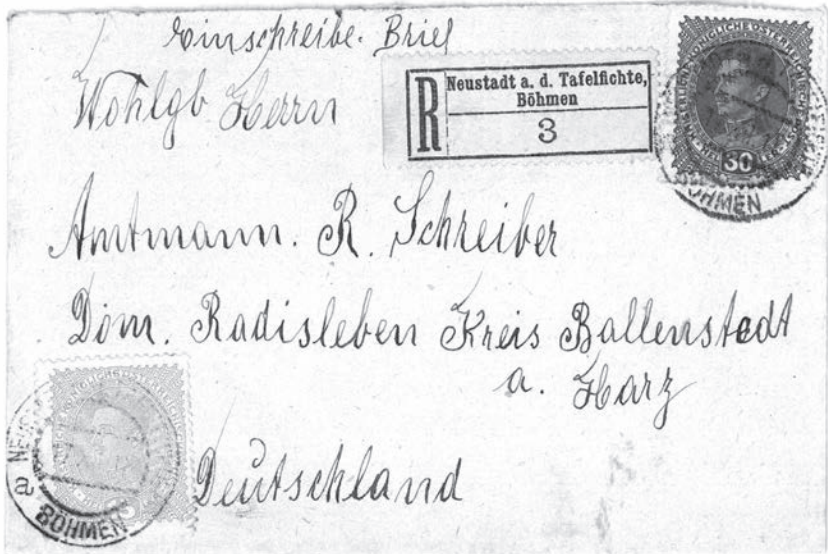 Einschreibe-Brief
Wohlgb Herrn
R
Neustadt a. d. Tafelfichte,
Böhmen
3
30
BÖHMEN
Amtmann. R. Schreiber
Dom. Radisleben Kreis Ballenstedt
a. Harz
Deutschland
a
BÖHMEN